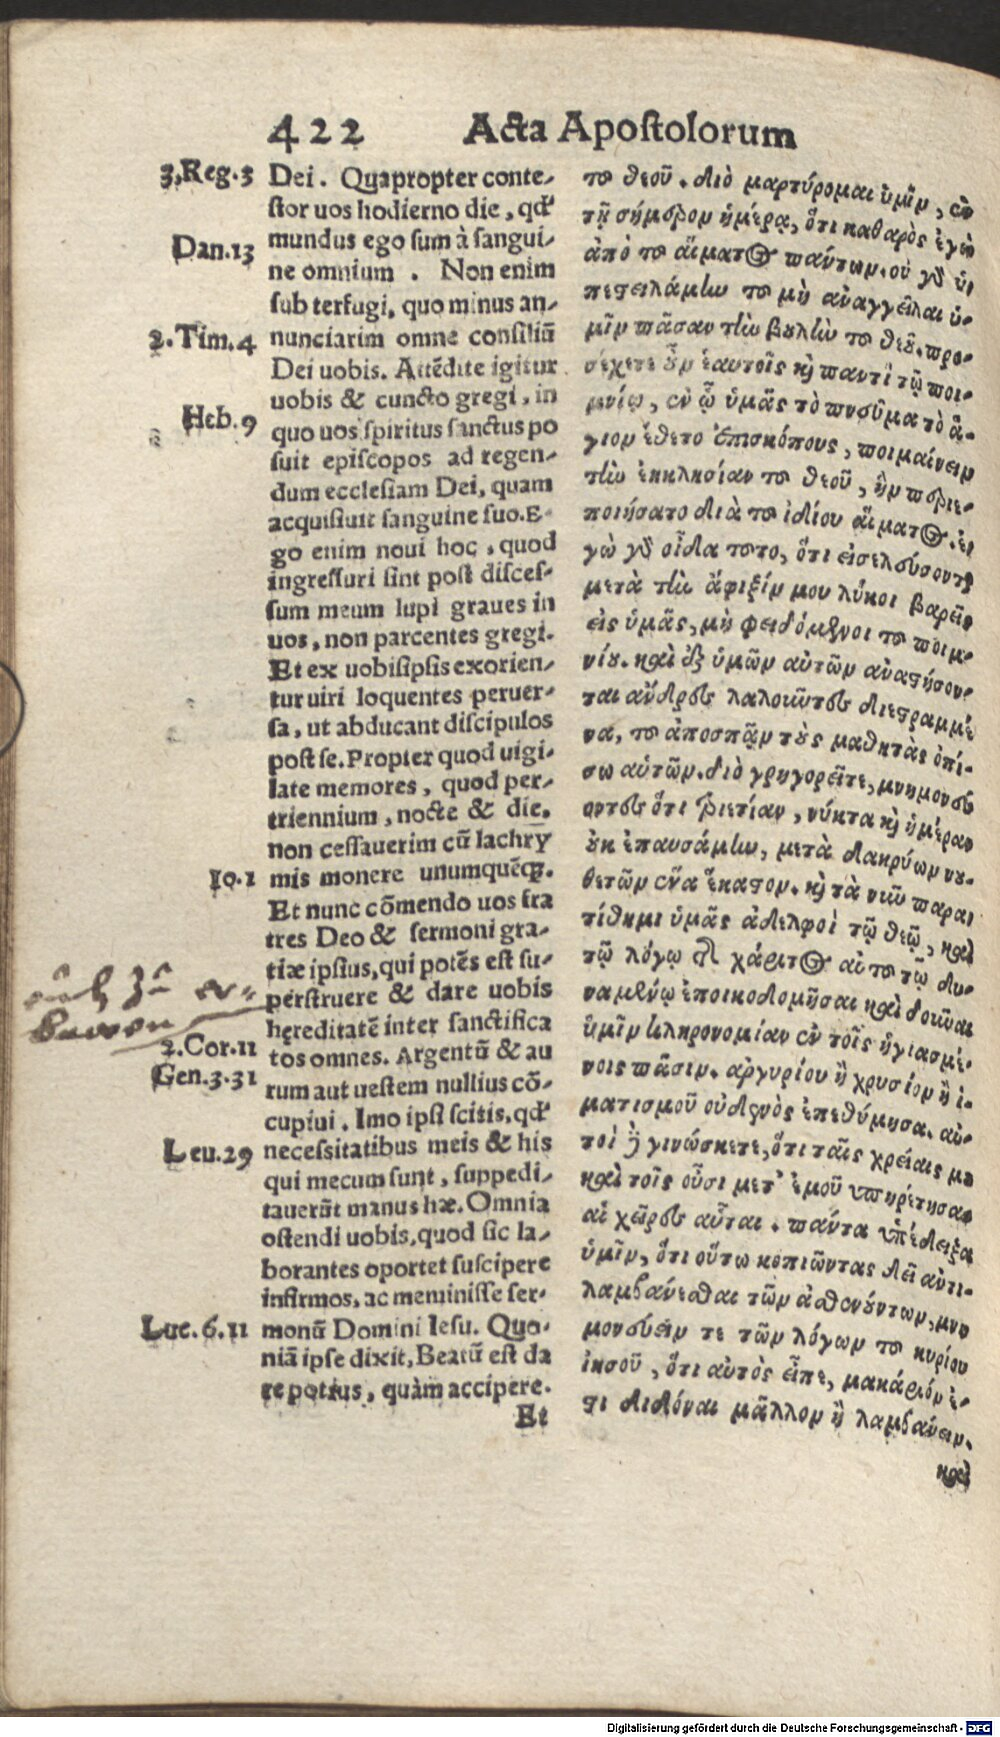 422 Acta Apostolorum
3.Reg.3
Dan.13
2.Tim.4
Heb.9
Io.1
2.Cor.11
Gen.3.31
Leu.29
Luc.6.11
Dei. Quapropter conte-
stor uos hodierno die, qđ
mundus ego sum à sangui-
ne omnium . Non enim
subterfugi, quo minus an-
nunciarim omne consiliū
Dei uobis. Attēdite igitur
uobis & cuncto gregi, in
quo uos spiritus sanctus po
suit episcopos ad regen-
dum ecclesiam Dei, quam
acquisiuit sanguine suo. E-
go enim noui hoc, quod
ingressuri sint post disces-
sum meum lupi graues in
uos, non parcentes gregi.
Et ex uobisipsis exorien-
tur uiri loquentes peruer-
sa, ut abducant discipulos
post se. Propter quod uigi-
late memores, quod per-
triennium, nocte & die,
non cessauerim cū lachry
mis monere unumquēq;.
Et nunc cōmendo uos fra
tres Deo & sermoni gra-
tiæ ipsius, qui potēs est su-
perstruere & dare uobis
hęreditatē inter sanctifica
tos omnes. Argentū & au
rum aut uestem nullius cō-
cupiui. Imo ipsi scitis, qđ
necessitatibus meis & his
qui mecum sunt, suppedi-
tauerūt manus hæ. Omnia
ostendi uobis, quod sic la-
borantes oportet suscipere
infirmos, ac meminisse ser-
monū Domini Iesu. Quo-
niā ipse dixit, Beatū est da
re potius, quàm accipere.
Et
τοῦ θεοῦ. διὸ μαρτύρομαι ὑμῖν, ἐν
τῇ σήμερον ἡμέρᾳ, ὅτι καθαρὸς ἐγὼ
ἀπὸ τοῦ αἵματος πάντων. οὐ γὰρ ὑ
πεστειλάμην τοῦ μὴ ἀναγγεῖλαι ὑ-
μῖν πᾶσαν τὴν βουλὴν τοῦ θεοῦ. προ-
σέχετε οὖν ἑαυτοῖς καὶ παντὶ τῷ ποι-
μνίῳ, ἐν ᾧ ὑμᾶς τὸ πνεῦμα τὸ ἅ-
γιον ἔθετο ἐπισκόπους, ποιμαίνειν
τὴν ἐκκλησίαν τοῦ θεοῦ, ἣν περιε-
ποιήσατο διὰ τοῦ ἰδίου αἵματος. ἐ-
γὼ γὰρ οἶδα τοῦτο, ὅτι εἰσελεύσονται
μετὰ τὴν ἄφιξίν μου λύκοι βαρεῖς
εἰς ὑμᾶς, μὴ φειδόμενοι τοῦ ποιμ-
νίου. καὶ ἐξ ὑμῶν αὐτῶν ἀναστήσον-
ται ἄνδρες λαλοῦντες διεστραμμέ
να, τοῦ ἀποσπᾷν τοὺς μαθητὰς ὀπί-
σω αὐτῶν. διὸ γρηγορεῖτε, μνημονεύ
οντες ὅτι τριετίαν, νύκτα καὶ ἡμέραν
οὐκ ἐπαυσάμην, μετὰ δακρύων νου-
θετῶν ἕνα ἕκαστον. καὶ τὰ νῦν παρα
τίθημι ὑμᾶς ἀδελφοὶ τῷ θεῷ, καὶ
τῷ λόγῳ τῆς χάριτος αὐτοῦ τῷ δυ-
ναμένῳ ἐποικοδομῆσαι καὶ δοῦναι
ὑμῖν κληρονομίαν ἐν τοῖς ἡγιασμέ-
νοις πᾶσιν. ἀργυρίου ἢ χρυσίου ἢ ἱ-
ματισμοῦ οὐδενὸς ἐπεθύμησα. αὐ-
τοὶ δὲ γινώσκετε, ὅτι ταῖς χρείαις μου
καὶ τοῖς οὖσι μετ' ἐμοῦ ὑπηρέτησαν
αἱ χεῖρες αὗται. πάντα ὑπέδειξα
ὑμῖν, ὅτι οὕτω κοπιῶντας δεῖ ἀντι-
λαμβάνεσθαι τῶν ἀσθενούντων, μνη
μονεύειν τε τῶν λόγων τοῦ κυρίου
ἰησοῦ, ὅτι αὐτὸς εἶπε, μακάριόν ἐ-
στι διδόναι μᾶλλον ἢ λαμβάνειν.
καὶ
Digitalisierung gefördert durch die Deutsche Forschungsgemeinschaft - DFG